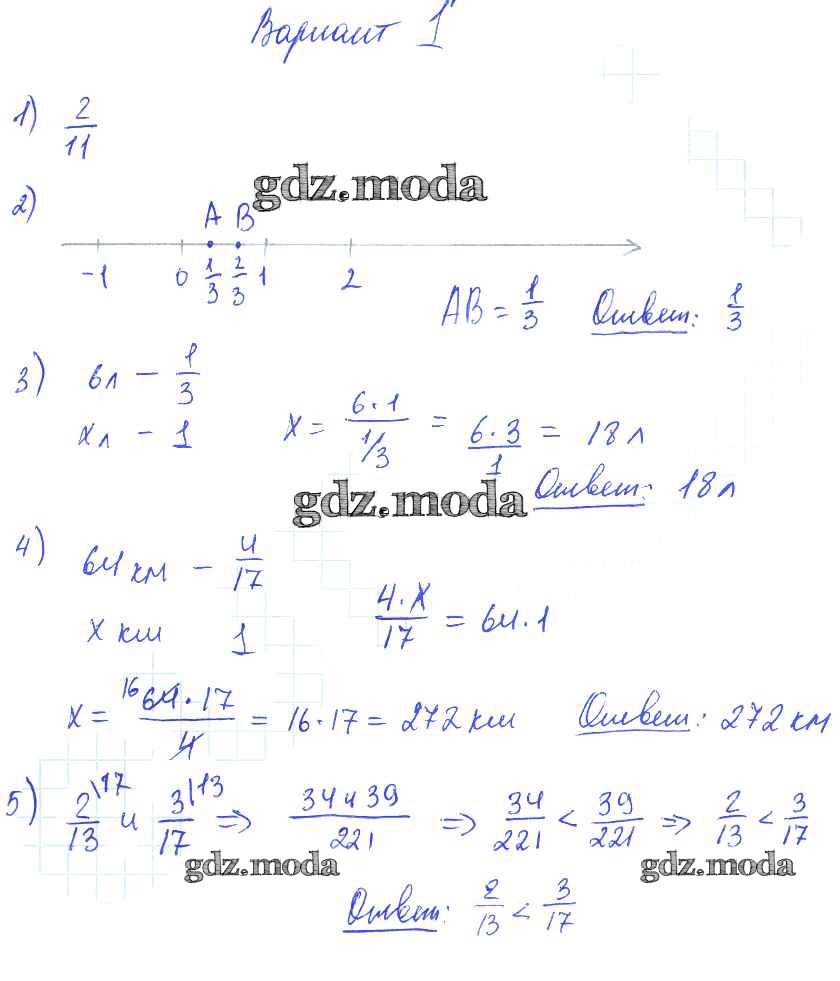 Вариант 1
1) 2/11
gdz.moda
2)
A B
-1 0 1/3 2/3 1 2
AB = 1/3 Ответ: 1/3
3) 6л — 1/3
xл - 1 x = 6·1 / 1/3 = 6·3/1 = 18 л
Ответ: 18л
gdz.moda
4) 64 км — 4/17
x км 1 4·x/17 = 64·1
x = 16 64·17/4 = 16·17 = 272 км Ответ: 272 км
5) 2/13 \17 и 3/17 |13 => 34 и 39/221 => 34/221 < 39/221 => 2/13 < 3/17
gdz.moda gdz.moda
Ответ: 2/13 < 3/17